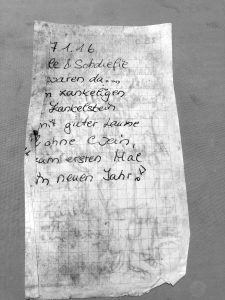 7.1.16
le & Sohdiefie
waren da...
n kankeligen
kankelstein
mit guter Laune
ohne Wein,
zum ersten Mal
im neuen Jahr!